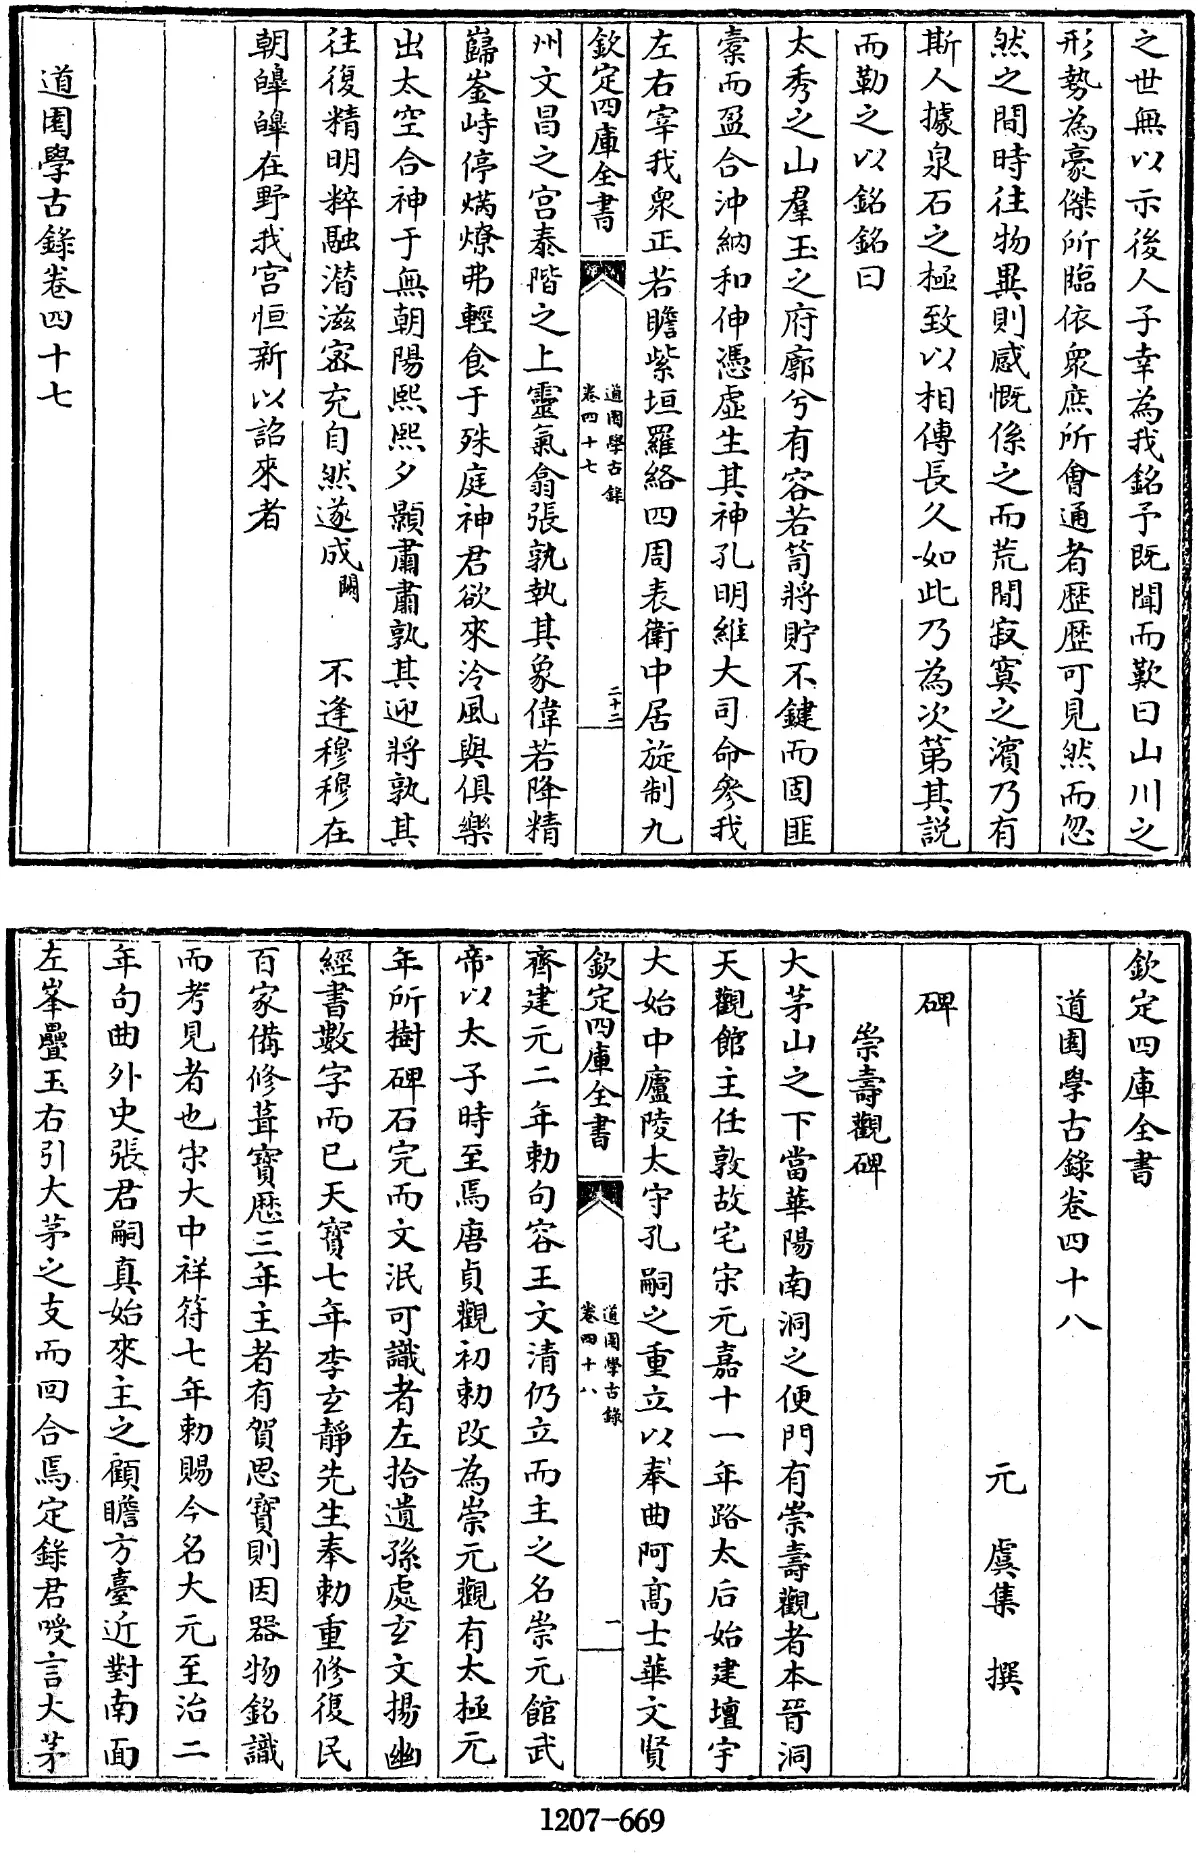 之世無以示後人子幸為我銘予既聞而歎曰山川之
形勢為豪傑所臨依衆庶所會通者歴歴可見然而忽
然之間時往物異則感慨係之而荒閒寂寞之濱乃有
斯人據泉石之極致以相傳長久如此乃為次第其說
而勒之以銘銘曰
太秀之山羣玉之府廓兮有容若笥將貯不鍵而固匪
橐而盈合沖納和伸憑虛生其神孔明維大司命參我
左右宰我衆正若瞻紫垣羅絡四周表衛中居旋制九
欽定四庫全書
道園學古錄
卷四十七
二十二
州文昌之宮泰階之上靈氣翕張孰執其象偉若降精
巋崟峙停熇燎弗輕食于殊庭神君欲來泠風與俱樂
出太空合神于無朝陽熙熙夕顥肅肅孰其迎將孰其
往復精明粹融潛滋宻充自然遂成闕 不逢穆穆在
朝皥皥在野我宮恒新以詔來者
道園學古錄卷四十七
欽定四庫全書
道園學古錄卷四十八
元 虞集 撰
碑
崇壽觀碑
大茅山之下當華陽南洞之便門有崇壽觀者本晉洞
天觀館主任敦故宅宋元嘉十一年路太后始建壇宇
大始中廬陵太守孔嗣之重立以奉曲阿髙士華文賢
欽定四庫全書
道園學古錄
卷四十八
一
齊建元二年勅句容王文清仍立而主之名崇元館武
帝以太子時至焉唐貞觀初勅改為崇元觀有太極元
年所樹碑石完而文泯可識者左拾遺孫處玄文揚幽
經書數字而已天寳七年李玄靜先生奉勅重修復民
百家備修葺寳歴三年主者有賀思寳則因器物銘識
而考見者也宋大中祥符七年勅賜今名大元至治二
年句曲外史張君嗣真始來主之顧瞻方臺近對南面
左峯疊玉右引大茅之支而回合焉定錄君嘆言大茅
1207-669